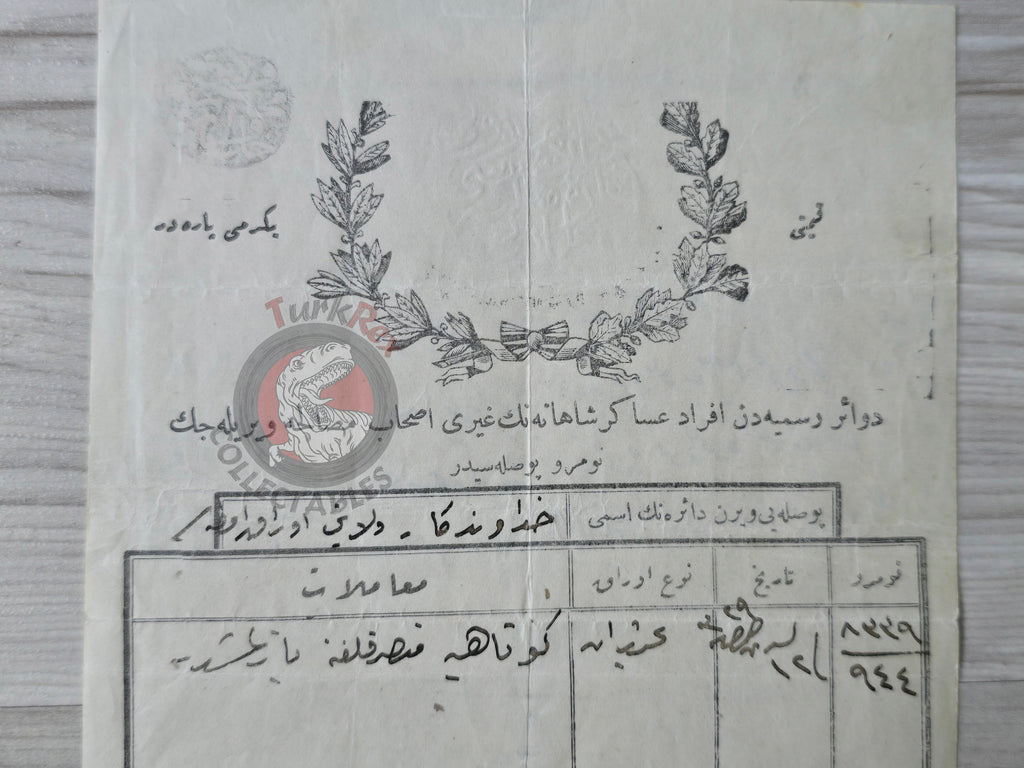 قیمتی
یکرمی پاره در
TurkRex
COLLECTABLES
دوائر رسمیه دن افراد عساکر شاهانه نك غیری اصحاب مصالحه ویریله جك
نومرو پوصله سیدر
پوصله یی ویرن دائره نك اسمی
خداوندکار ولایتی اوراق
نومرو تاریخ نوع اوراق معاملات
٨٣٣٩ ٢٩ کوتاهیه متصرفلغنه یازلمشدر
٩٤٤